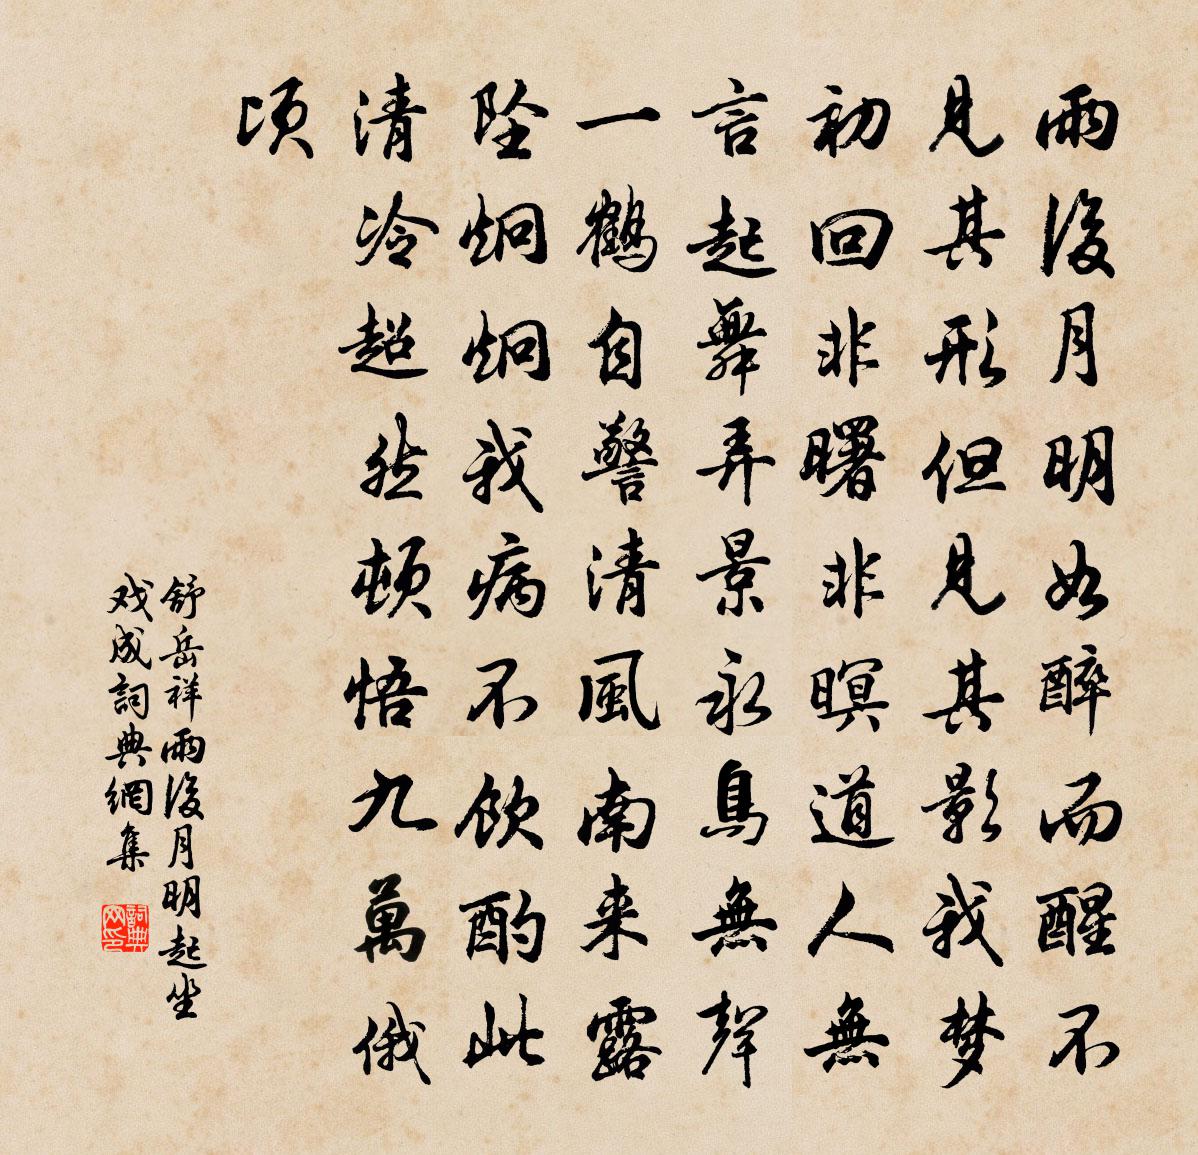 雨後月明如醉而醒不
見其形但見其影我梦
初回非曙非暝道人無
言起舞弄景永鳥無聲
一鶴自警清風南来露
墜炯炯我病不飲酌此
清冷超然頓悟九萬俄
頃
舒岳祥雨後月明起坐
戏成詞典網集
詞典网印